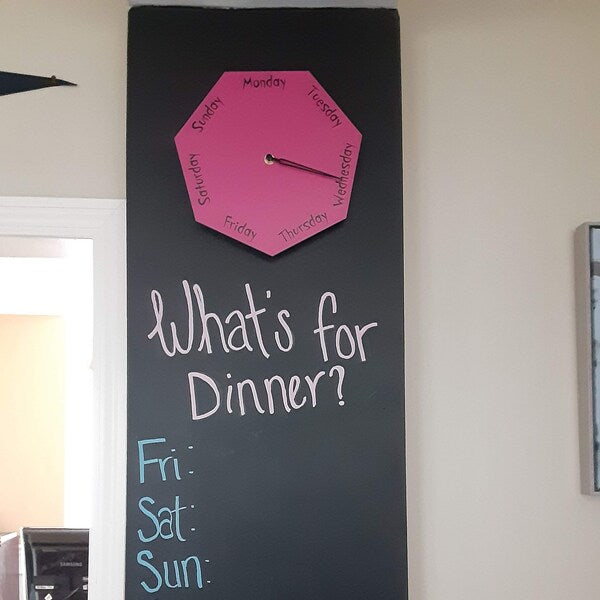 Monday
Tuesday
Wednesday
Thursday
Friday
Saturday
Sunday
What's for
Dinner?
Fri:
Sat:
Sun:
SAMSUNG